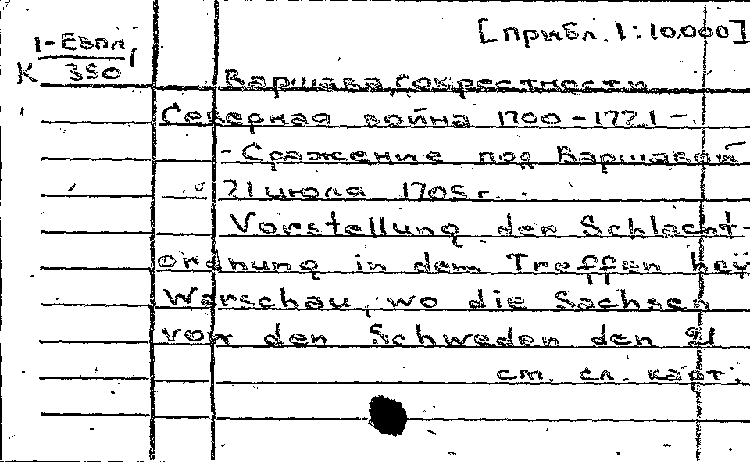 [прибл. 1:10.000]
К 1-Евпл, 350
Варшава, окрестности
Северная война 1700-1721 -
- Сражение под Варшавой
21 июля 1705 г.
Vorstellung den Schlacht-
ordnung in dem Treffen beÿ
Warschau, wo die Sachsen
von den Schweden den 21
см. сл. карт.